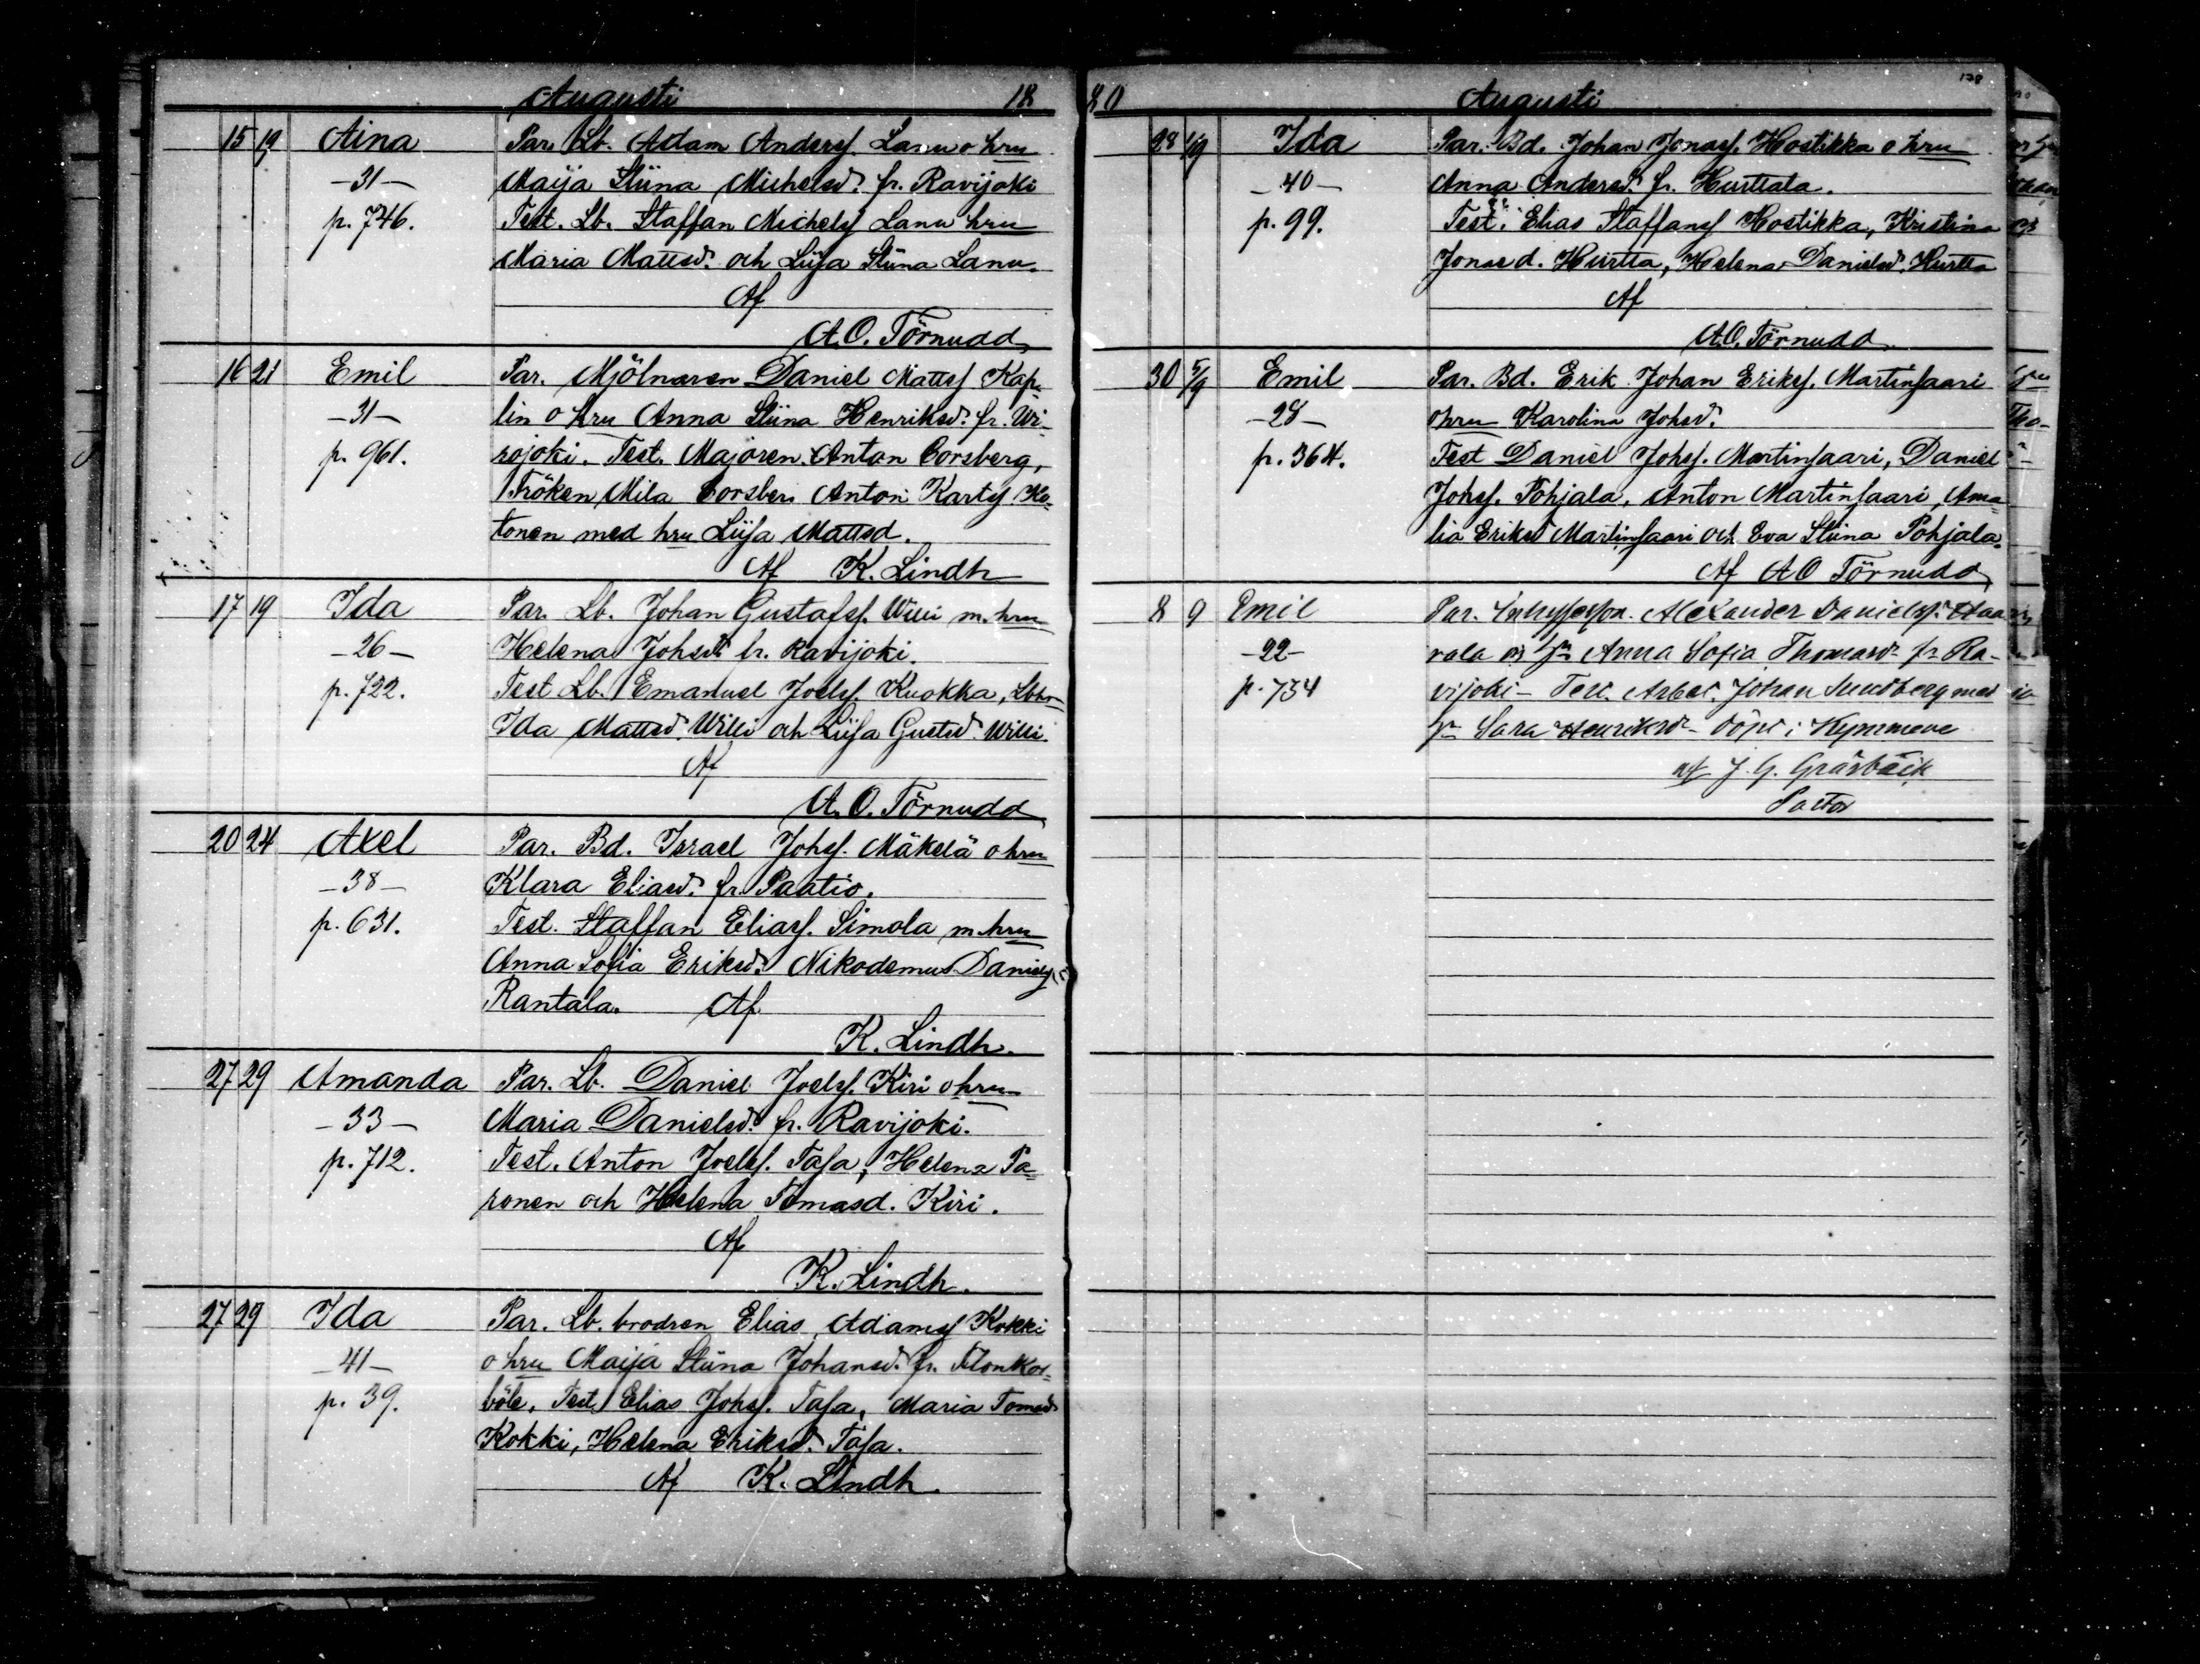 Augusti 18
15 19 Aina Par. Lb. Adam Andersf. Lanu o hru
-31- Maija Stiina Michelsd. fr. Ravijoki
p. 746. Test. Lb. Staffan Michelsf Lanu hru
Maria Mattsd. och Liisa Stiina Lanu.
Af
A.O. Törnudd
16 21 Emil Par. Mjölnaren Daniel Mattsf Kap-
-31- lin o hru Anna Stiina Henriksd. fr. Wi-
p. 961. rojoki. Test. Majoren Anton Corsberg,
Fröken Mila Corsberg Anton Karlsf. Ko-
tonen med hru Liisa Mattsd.
Af K. Lindh
17 19 Ida Par. Lb. Johan Gustafsf. Willi m. hru
-26- Helena Johsd. fr. Ravijoki.
p. 722. Test Lb. Emanuel Joelsf. Kuokka,
Ida Mattsd. Willi och Liisa Gustsd. Willi.
Af
A. O. Törnudd
20 24 Axel Par. Bd. Israel Johsf. Mäkelä o hru
-38- Klara Eliasd. fr. Paatio.
p. 631. Test. Staffan Eliasf. Simola m. hru
Anna Sofia Eriksd. Nikodemus Danielsf
Rantala. Af
K. Lindh.
27 29 Amanda Par. Lb. Daniel Joelsf. Kiri o hru
-33- Maria Danielsd. fr. Ravijoki.
p. 712. Test. Anton Joelsf. Tasa, Helena Pa-
ronen och Helena Tomasd. Kiri.
Af
K. Lindh.
27 29 Ida Par. Lb. brodren Elias Adamsf Kokki
-41- o hru Maija Stiina Johansd. fr.
p. 39. böle, Test Elias Johsf. Tasa, Maria Tomasd
Kokki, Helena Eriksd. Tasa.
Af K. Lindh.
80 Augusti 128
28 1/9 Ida Par. Bd. Johan Jonasf. Hostikka o hru
-40- Anna Andersd. fr. Hurttala.
p. 99. Test. Elias Staffansf Hostikka, Kristina
Jonasd. Hurtta, Helena Danielsd. Hurtta
Af
A.O. Törnudd
30 5/9 Emil Par. Bd. Erik Johan Eriksf. Martinsaari
-28- o hru Karolina Johsd.
p. 364. Test Daniel Johsf. Martinsaari, Daniel
Johsf. Pohjala, Anton Martinsaari, Ama-
lia Eriksd Martinsaari och Eva Stiina Pohjala.
Af A O Törnudd
8 9 Emil Par. Alexander Danielsf.
-22- Anna Sofia Thomasd fr Ra-
p. 734 vijoki - Test. Arbet. Johan Sundberg med
Sara Henriksd - döpt i Kymmene
af J. G. Gråsbäck
Pastor